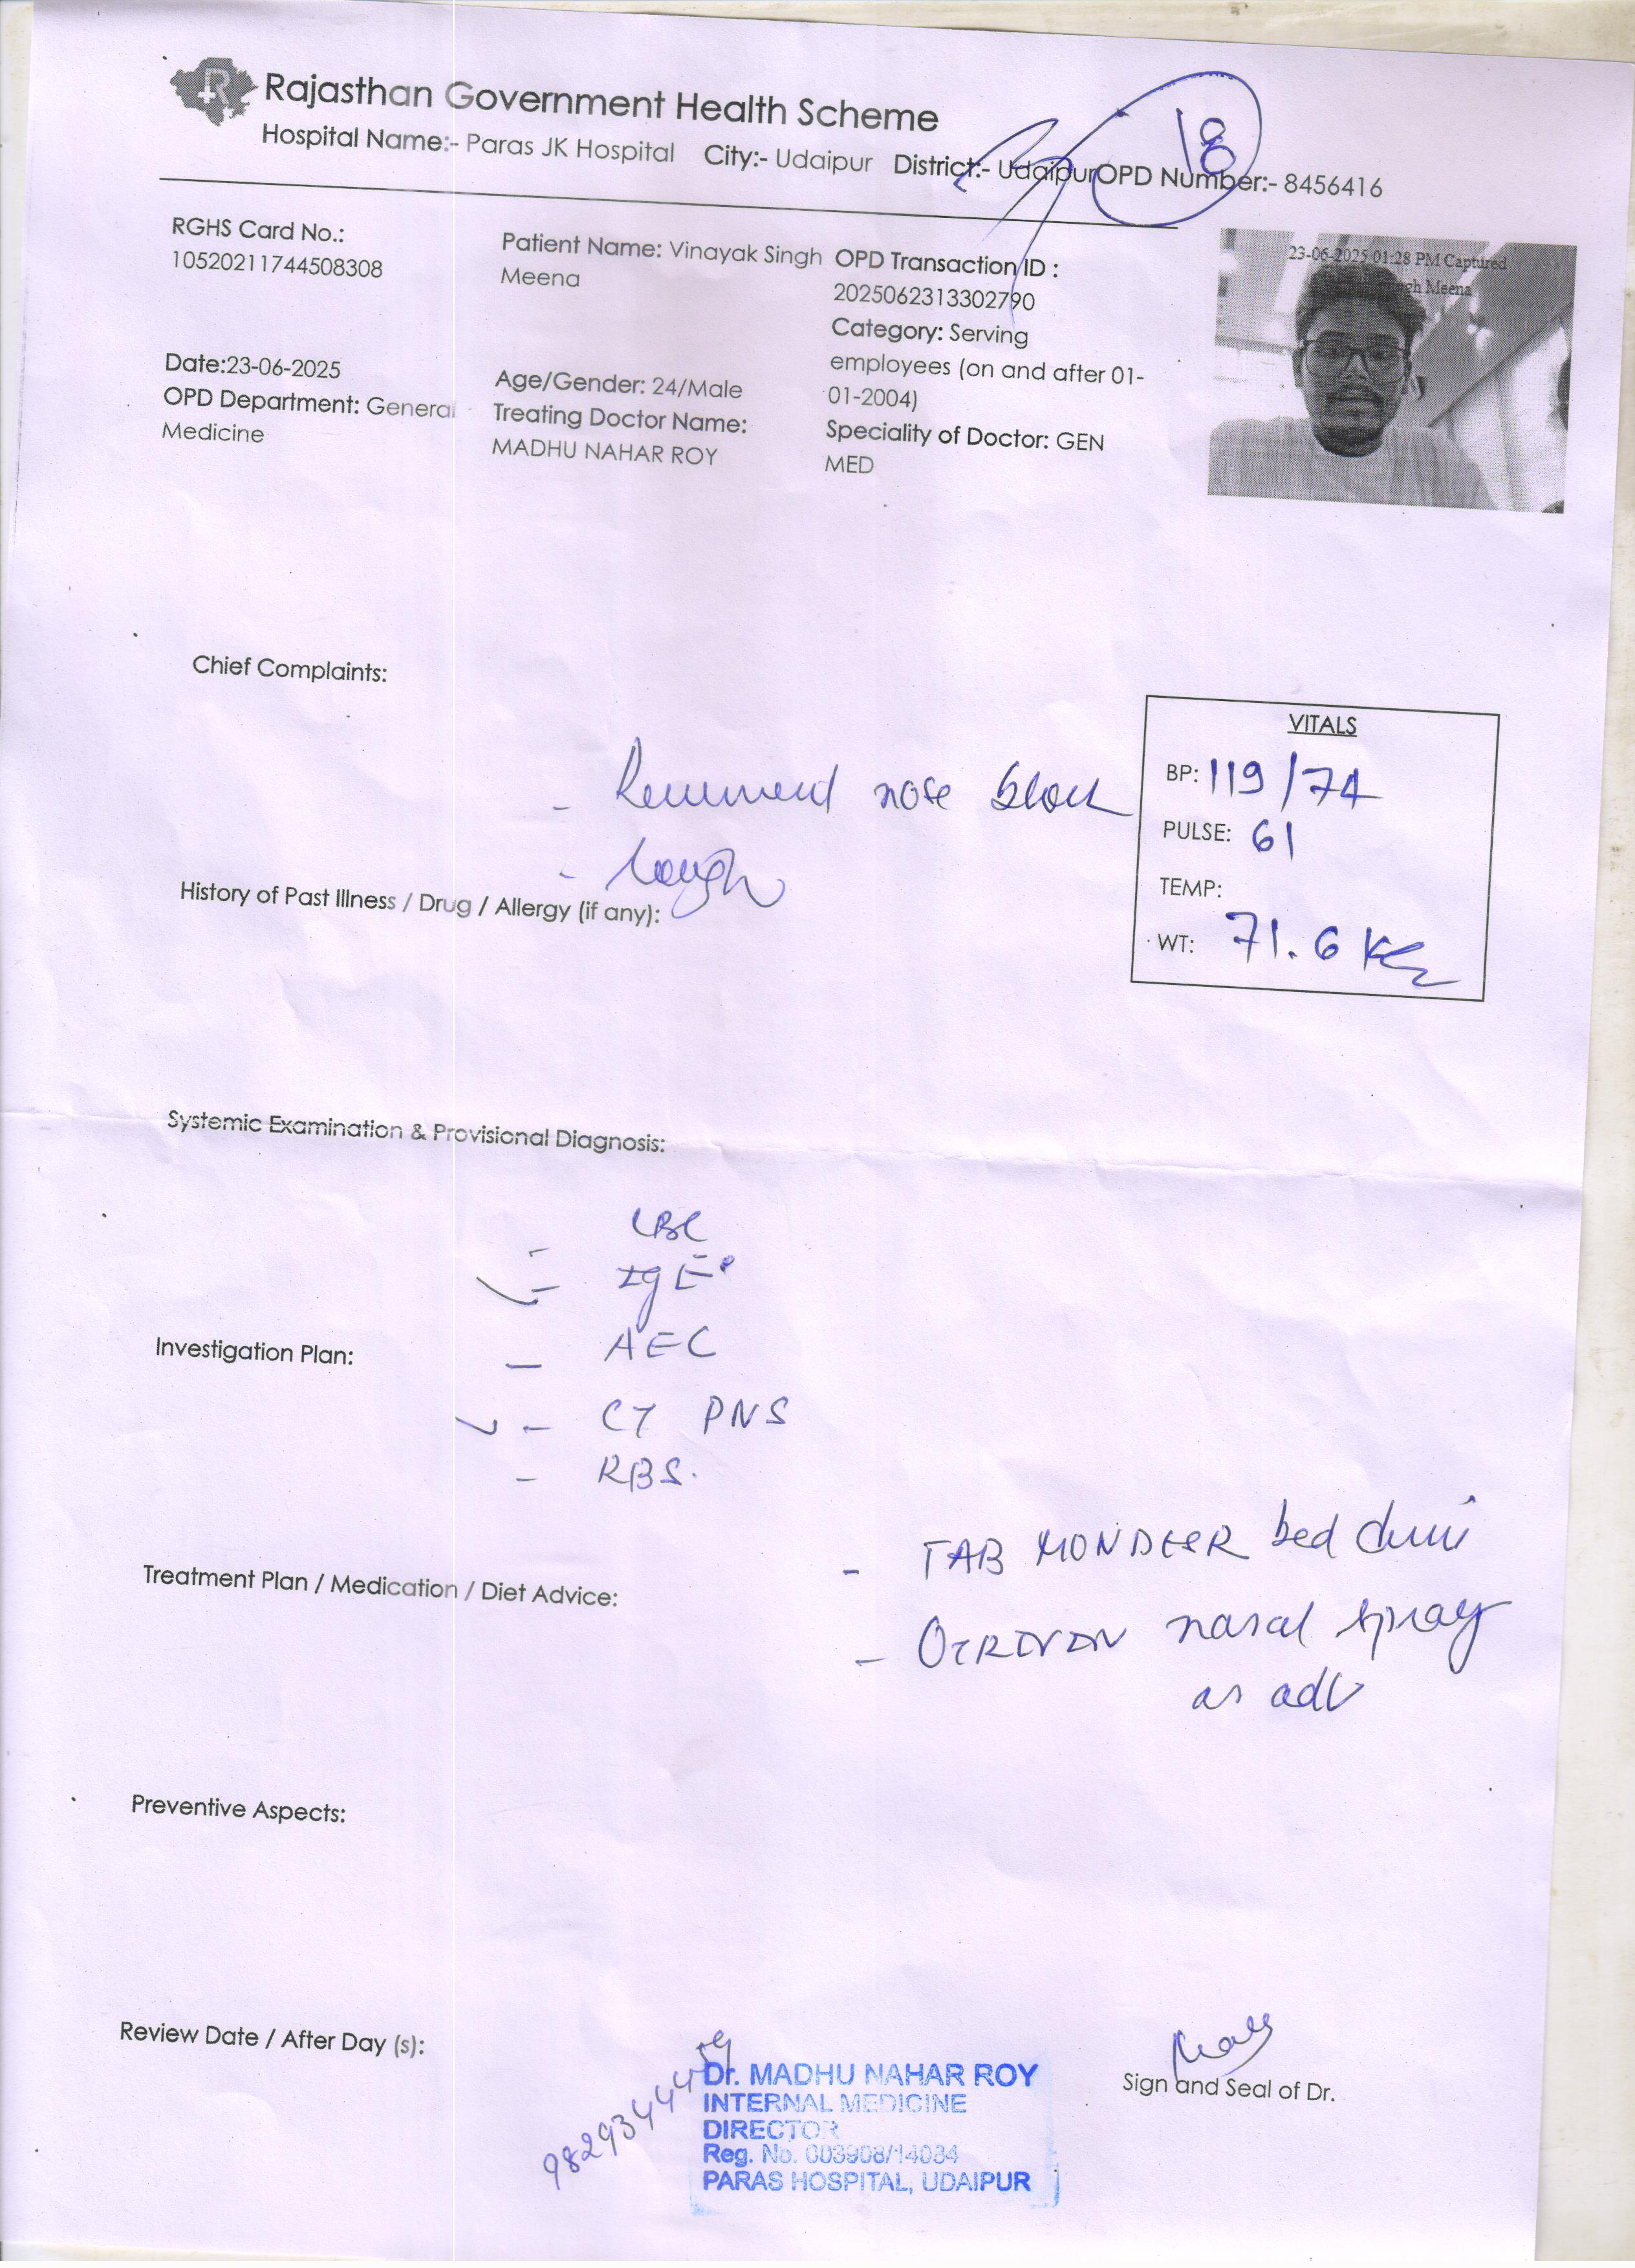 Rajasthan Government Health Scheme
Hospital Name:- Paras JK Hospital City:- Udaipur District:- Udaipur OPD Number:- 8456416
18
RGHS Card No.:
10520211744508308
Patient Name: Vinayak Singh
Meena
OPD Transaction ID :
2025062313302790
Category: Serving
employees (on and after 01-
01-2004)
23-06-2025 01:28 PM Captured
gh Meena
Date:23-06-2025
OPD Department: General
Medicine
Age/Gender: 24/Male
Treating Doctor Name:
MADHU NAHAR ROY
Speciality of Doctor: GEN
MED
Chief Complaints:
- nose block
- Cough
VITALS
BP: 119/74
PULSE: 61
TEMP:
WT: 71.6 KG
History of Past Illness / Drug / Allergy (if any):
Systemic Examination & Provisional Diagnosis:
- CBC
- IgE
Investigation Plan:
- AEC
- CT PNS
- RBS.
Treatment Plan / Medication / Diet Advice:
- TAB bed
- OTRIVIN nasal spray
as adv
Preventive Aspects:
Review Date / After Day (s):
Dr. MADHU NAHAR ROY
INTERNAL MEDICINE
DIRECTOR
Reg. No. 003908/14034
PARAS HOSPITAL, UDAIPUR
9829344459
Sign and Seal of Dr.